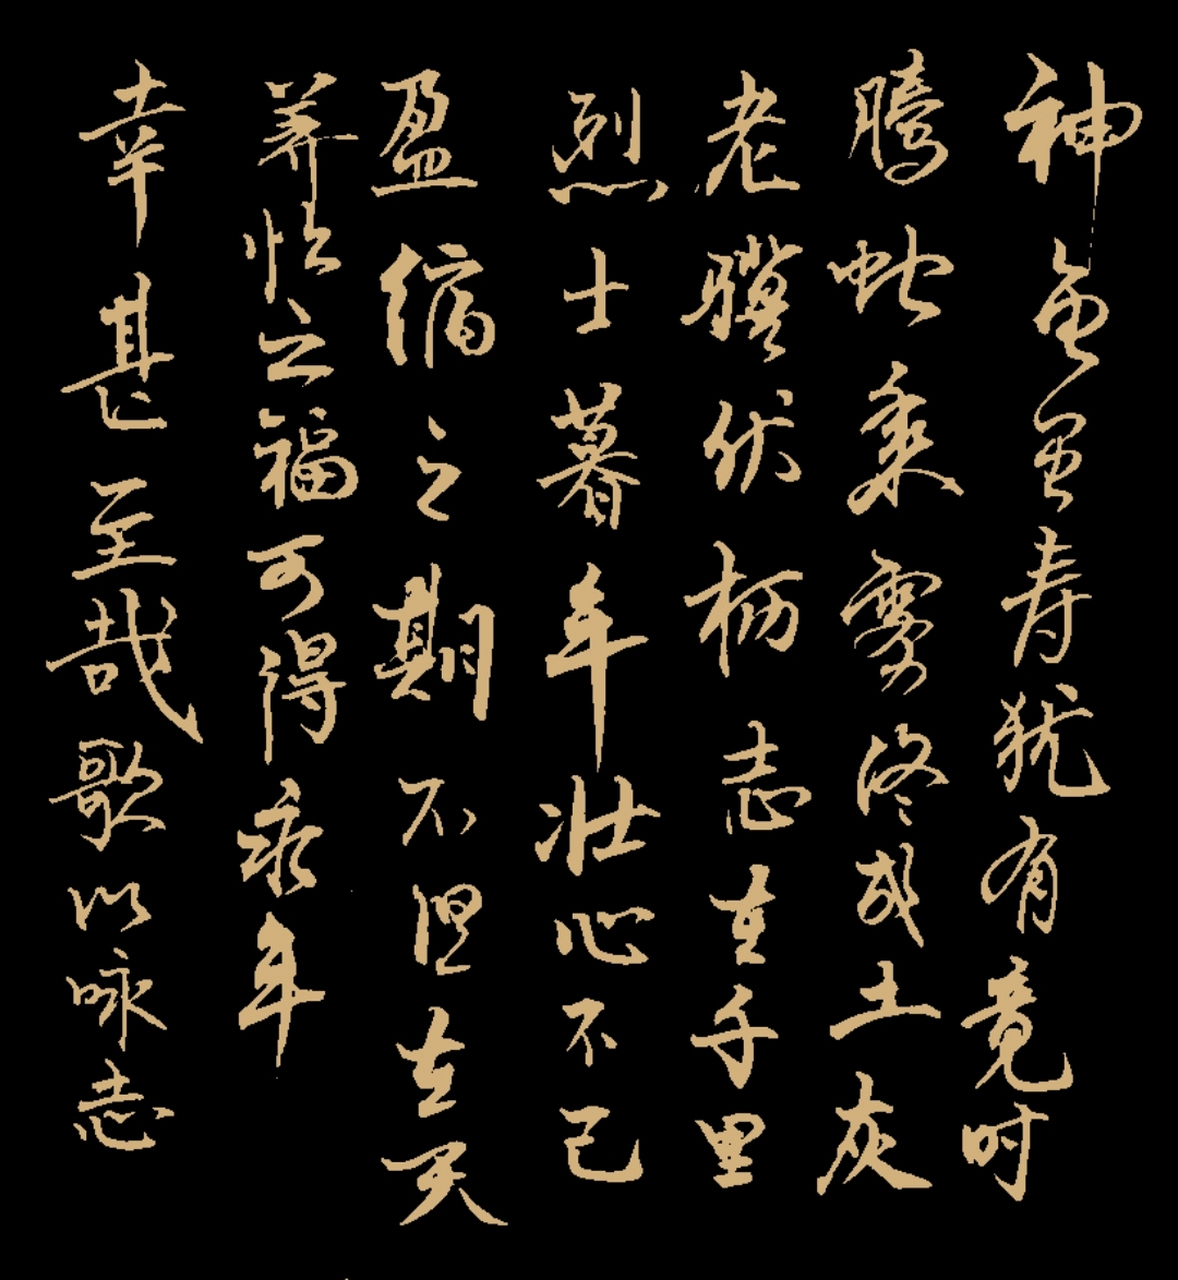 神龟虽寿犹有竟时
腾蛇乘雾终成土灰
老骥伏枥志在千里
烈士暮年壮心不已
盈缩之期不但在天
养怡之福可得永年
幸甚至哉歌以咏志